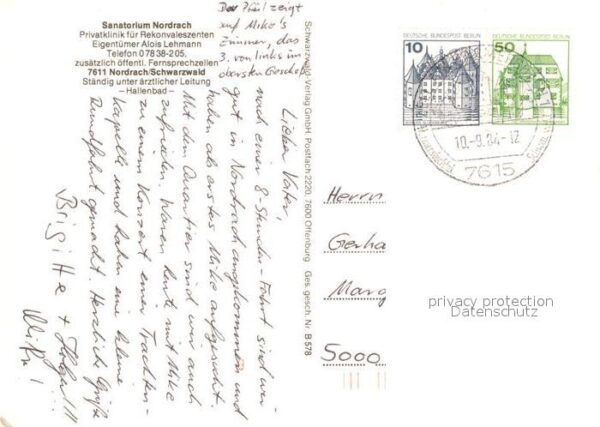 Sanatorium Nordrach
Privatklinik für Rekonvaleszenten
Eigentümer Alois Lehmann
Telefon 0 78 38-2 05,
zusätzlich öffentl. Fernsprechzellen
7611 Nordrach/Schwarzwald
Ständig unter ärztlicher Leitung
– Hallenbad –
Der Pfeil zeigt
auf Mike's
Zimmer, das
3. von links im
obersten Geschoß
Lieber Vater,
nach einer 8-Stunden-Fahrt sind wir
gut in Nordrach angekommen und
haben als erstes Mike aufgesucht.
Mit dem Quartier sind wir auch
zufrieden. Waren heute mit Mike
zu einem Konzert einer Trachten-
kapelle und haben eine kleine
Rundfahrt gemacht. Herzliche Grüße
Brigitte + Holger!!!
Mike!
Schwarzwald Verlag GmbH, Postfach 2220, 7600 Offenburg Ges. gesch. Nr. B 578
10 DEUTSCHE BUNDESPOST BERLIN
50 DEUTSCHE BUNDESPOST BERLIN
10.-9.84-12
7615
Herrn
Gerha
Marg
5000
privacy protection
Datenschutz